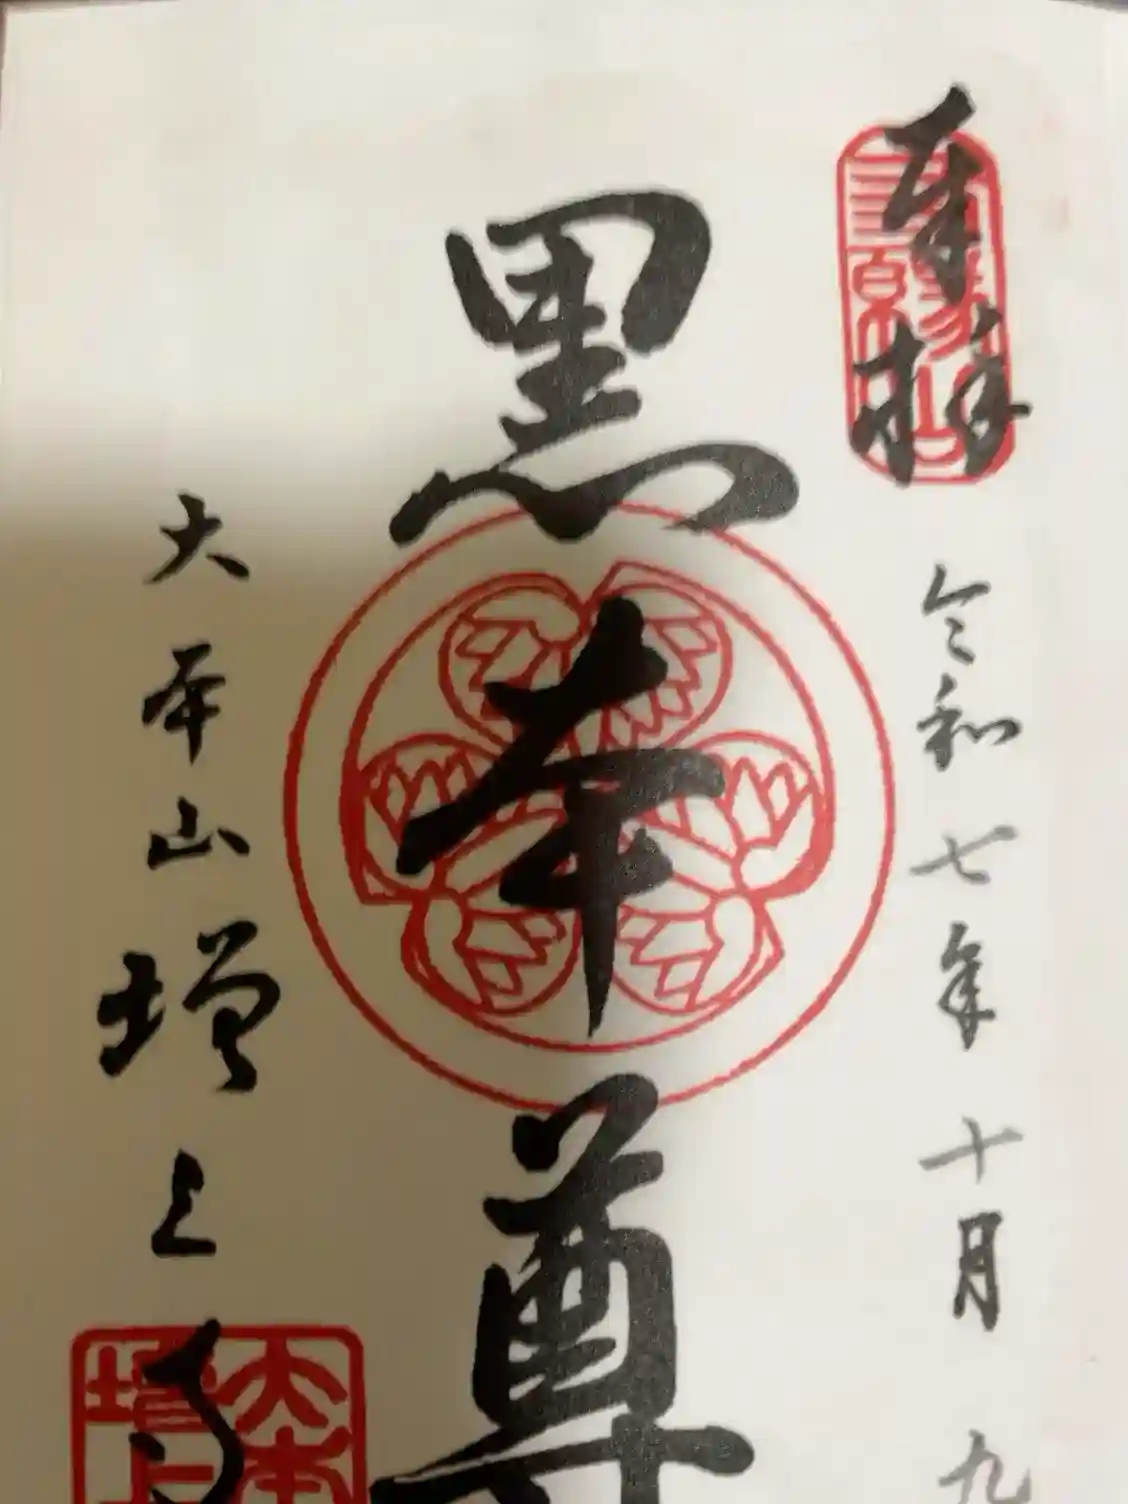 奉拝
令和七年十月九
黒本尊
大本山増上寺
大本
増上